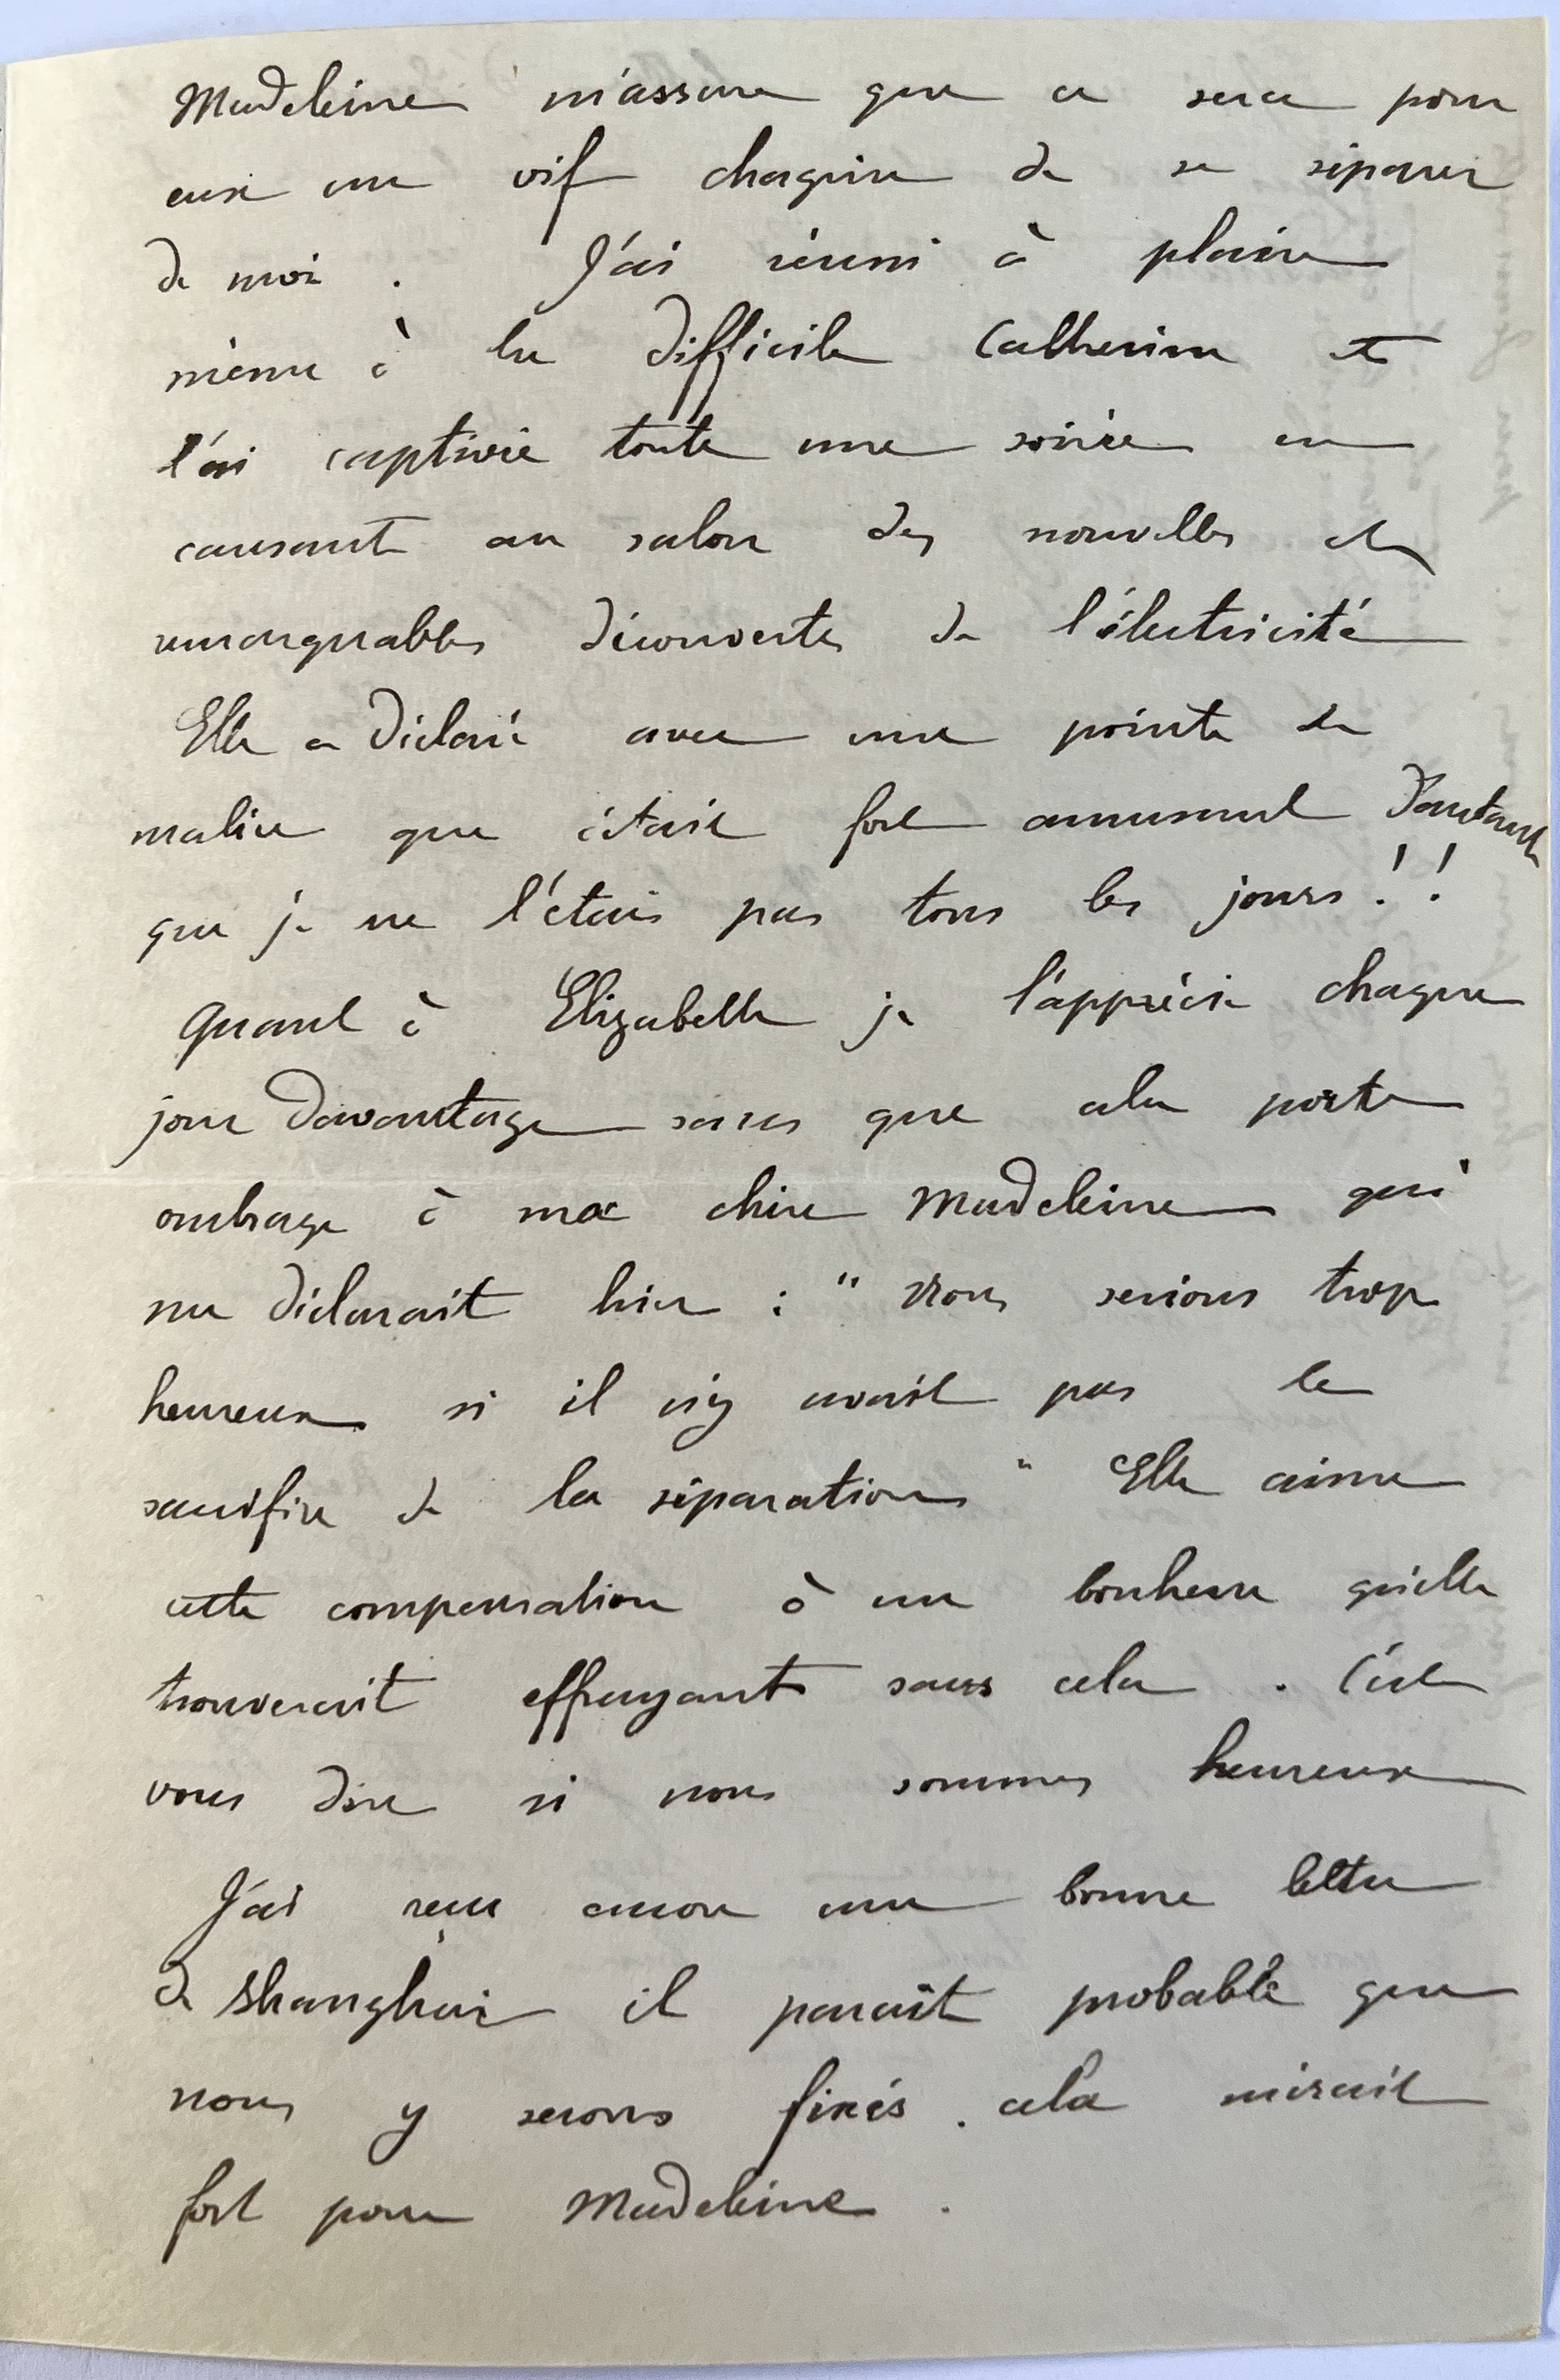 Madeleine m'assure que ce sera pour
eux un vif chagrin de se séparer
de moi . J'ai réussi à plaire
même à la difficile Catherine et
l'ai captivée toute une soirée en
causant au salon des nouvelles et
remarquables découvertes de l'électricité
Elle a déclaré avec une pointe de
malice que c'était fort amusant d'autant
que je ne l'étais pas tous les jours ! !
Quant à Elizabeth je l'apprécie chaque
jour davantage sans que cela porte
ombrage à ma chère Madeleine qui
me déclarait hier : " Nous serions trop
heureux si il n'y avait pas le
sacrifice de la séparation " Elle aime
cette compensation à un bonheur qu'elle
trouverait effrayant sans cela . C'est
vous dire si nous sommes heureux
J'ai reçu encore une bonne lettre
de Shanghai il parait probable que
nous y serons fixés . cela m'irait
fort pour Madeleine .